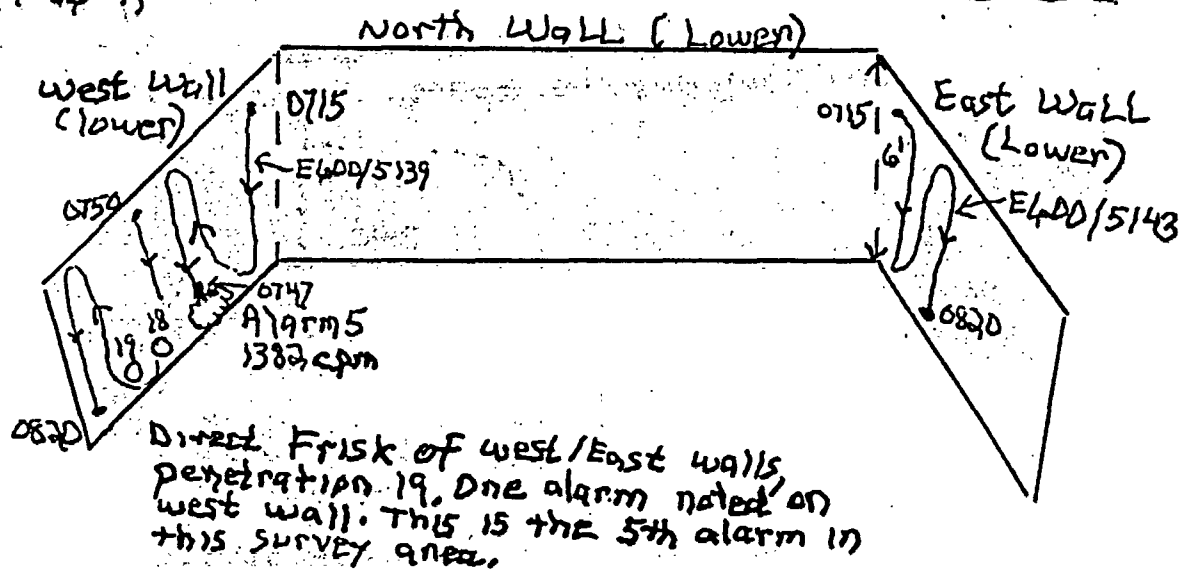 North Wall (Lower)
West Wall
(lower)
0715
E400/5139
0750
0747
Alarm 5
1382 cpm
18
19
0820
0715
6'
East Wall
(Lower)
E400/5143
0820
Direct Frisk of west/East walls,
penetration 19. One alarm noted on
west wall. This is the 5th alarm in
this survey area.